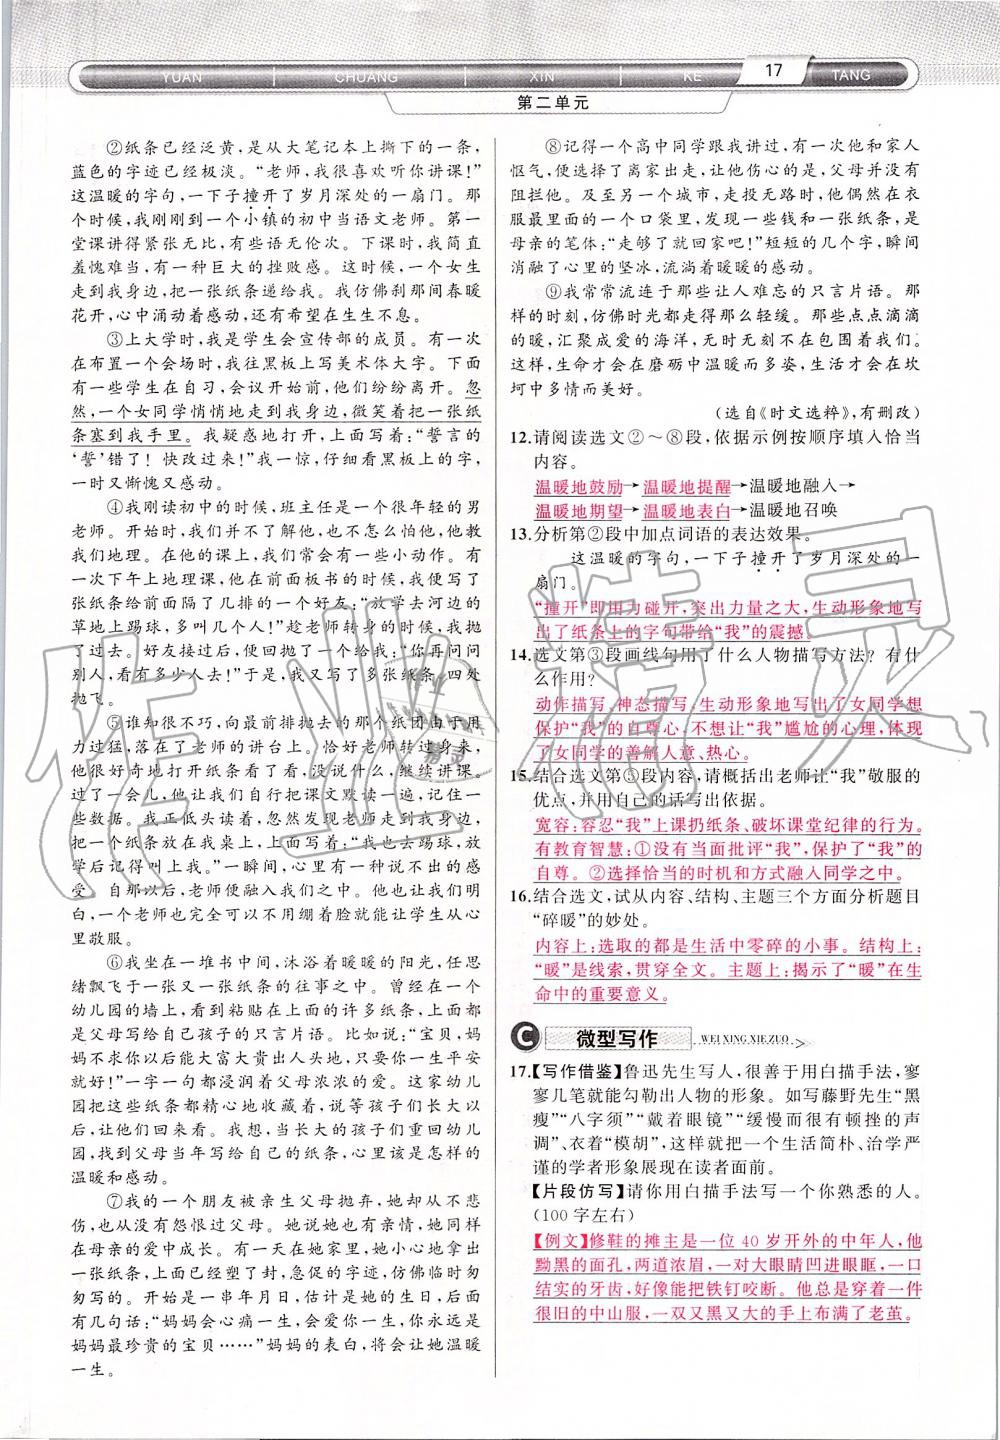 YUAN CHUANG XIN KE TANG
17
第二单元
②纸条已经泛黄，是从大笔记本上撕下的一条，
蓝色的字迹已经极淡。“老师，我很喜欢听你讲课！”
这温暖的字句，一下子撞开了岁月深处的一扇门。那
个时候，我刚刚到一个小镇的初中当语文老师。第一
堂课讲得紧张无比，有些语无伦次。下课时，我简直
羞愧难当，有一种巨大的挫败感。这时候，一个女生
走到我身边，把一张纸条递给我。我仿佛刹那间春暖
花开，心中涌动着感动，还有希望在生生不息。
③上大学时，我是学生会宣传部的成员。有一次
在布置一个会场时，我往黑板上写美术体大字。下面
有一些学生在自习，会议开始前，他们纷纷离开。忽
然，一个女同学悄悄地走到我身边，微笑着把一张纸
条塞到我手里。我疑惑地打开，上面写着：“誓言的
‘誓’错了！快改过来！”我一惊，仔细看黑板上的字，
一时又惭愧又感动。
④我刚读初中的时候，班主任是一个很年轻的男
老师。开始时，我们并不了解他，也不怎么怕他，他教
我们地理。在他的课上，我们会有一些小动作。有
一次下午上地理课，他在前面板书的时候，我便写了
张纸条给前面隔了几排的一个好友：“放学去河边的
草地上踢球，多叫几个人！”趁老师转身的时候，我抛
了过去。好友接过后，便回抛了一个给我：“你再问问
别人，看有多少人去！”于是，我又写了多张纸条，四处
抛飞。
⑤谁知很不巧，向最前排抛去的那个纸团由于用
力过猛，落在了老师的讲台上。恰好老师转过身来，
他很好奇地打开纸条看了看，没说什么，继续讲课。
过了一会儿，他让我们自行把课文默读一遍，记一
些数据。我正低头读着，忽然发现老师走到我身边，
把一个纸团放在我桌上，上面写着：“我也去踢球，放
学后记得叫上我。”一瞬间，心里有一种说不出的感
受。自那以后，老师便融入我们之中。他也让我们明
白，一个老师也完全可以不用绷着脸就能让学生从心
里敬服。
⑥我坐在一堆书中间，沐浴着暖暖的阳光，任思
绪飘飞于一张又一张纸条的往事之中。曾经在一个
幼儿园的墙上，看到粘贴在上面的许多纸条，上面
都是父母写给自己孩子的只言片语。比如说：“宝贝，妈妈
不求你以后能大富大贵出人头地，只要你一生平安
就好！”一字一句都浸润着父母浓浓的爱。这家幼儿
园把这些纸条都精心地收藏着，说等孩子们长大后，
让他们回来看。我想，当长大的孩子们重回幼儿
园，找到父母当年写给自己的纸条，心里该是怎样的
温暖和感动。
⑦我的一个朋友被亲生父母抛弃，她却从不悲
伤，也从没有怨恨过父母。她说她也有亲情，她同样
在母亲的爱中成长。有一天在她家里，她小心地拿出
一张纸条，上面已经塑了封，急促的字迹，仿佛临时匆
匆写的。开始是一串年月日，估计是她的生日，后面
有几句话：“妈妈会心痛一生，会爱你一生，你永远是
妈妈最珍贵的宝贝……”妈妈的表白，将会让她温暖
一生。
⑧记得一个高中同学跟我讲过，有一次他和家人
怄气，便选择了离家出走，让他伤心的是，父母并没有
阻拦他。及至去了另一个城市，走投无路时，他偶然在衣
服最里面的一个口袋里，发现一些钱和一张纸条，是
母亲的笔体：“走够了就回家吧！”短短的几个字，瞬间
消融了心里的坚冰，流淌着暖暖的感动。
⑨我常常流连于那些让人难忘的只言片语。那
样的时刻，仿佛时光都走得那么轻缓。那些点点滴滴
的暖，汇聚成爱的海洋，无时无刻不在包围着我们。
这样，生命才会在磨砺中温暖而多姿，生活才会在坎
坷中多情而美好。
（选自《时文选粹》，有删改）
12.请阅读选文②～⑧段，依据示例按顺序填入恰当
内容。
温暖地鼓励→温暖地提醒→温暖地融入→
温暖地期望→温暖地表白→温暖地召唤
13.分析第②段中加点词语的表达效果。
这温暖的字句，一下子撞开了岁月深处的一
扇门。
“撞开”即用力碰开，突出力量之大，生动形象地写
出了纸条上的字句带给“我”的震撼。
14.选文第③段画线句用了什么人物描写方法？有什
么作用？
动作描写、神态描写，生动形象地写出了女同学想
保护“我”的自尊心，不想让“我”尴尬的心理，体现
了女同学的善解人意、热心。
15.结合选文第⑤段内容，请概括出老师让“我”敬服的
优点，并用自己的话写出依据。
宽容：容忍“我”上课扔纸条、破坏课堂纪律的行为。
有教育智慧：①没有当面批评“我”，保护了“我”的
自尊。②选择恰当的时机和方式融入同学之中。
16.结合选文，试从内容、结构、主题三个方面分析题目
“碎暖”的妙处。
内容上：选取的都是生活中零碎的小事。结构上：
“暖”是线索，贯穿全文。主题上：揭示了“暖”在生
命中的重要意义。
C 微型写作 WEI XING XIE ZUO
17.【写作借鉴】鲁迅先生写人，很善于用白描手法，寥
寥几笔就能勾勒出人物的形象。如写藤野先生“黑
瘦”“八字须”“戴着眼镜”“缓慢而很有顿挫的声
调”、衣着“模胡”，这样就把一个生活简朴、治学严
谨的学者形象展现在读者面前。
【片段仿写】请你用白描手法写一个你熟悉的人。
（100字左右）
【例文】修鞋的摊主是一位40岁开外的中年人，他
黝黑的面孔，两道浓眉，一对大眼睛凹进眼眶，一口
结实的牙齿，好像能把铁钉咬断。他总是穿着一件
很旧的中山服，一双又黑又大的手上布满了老茧。